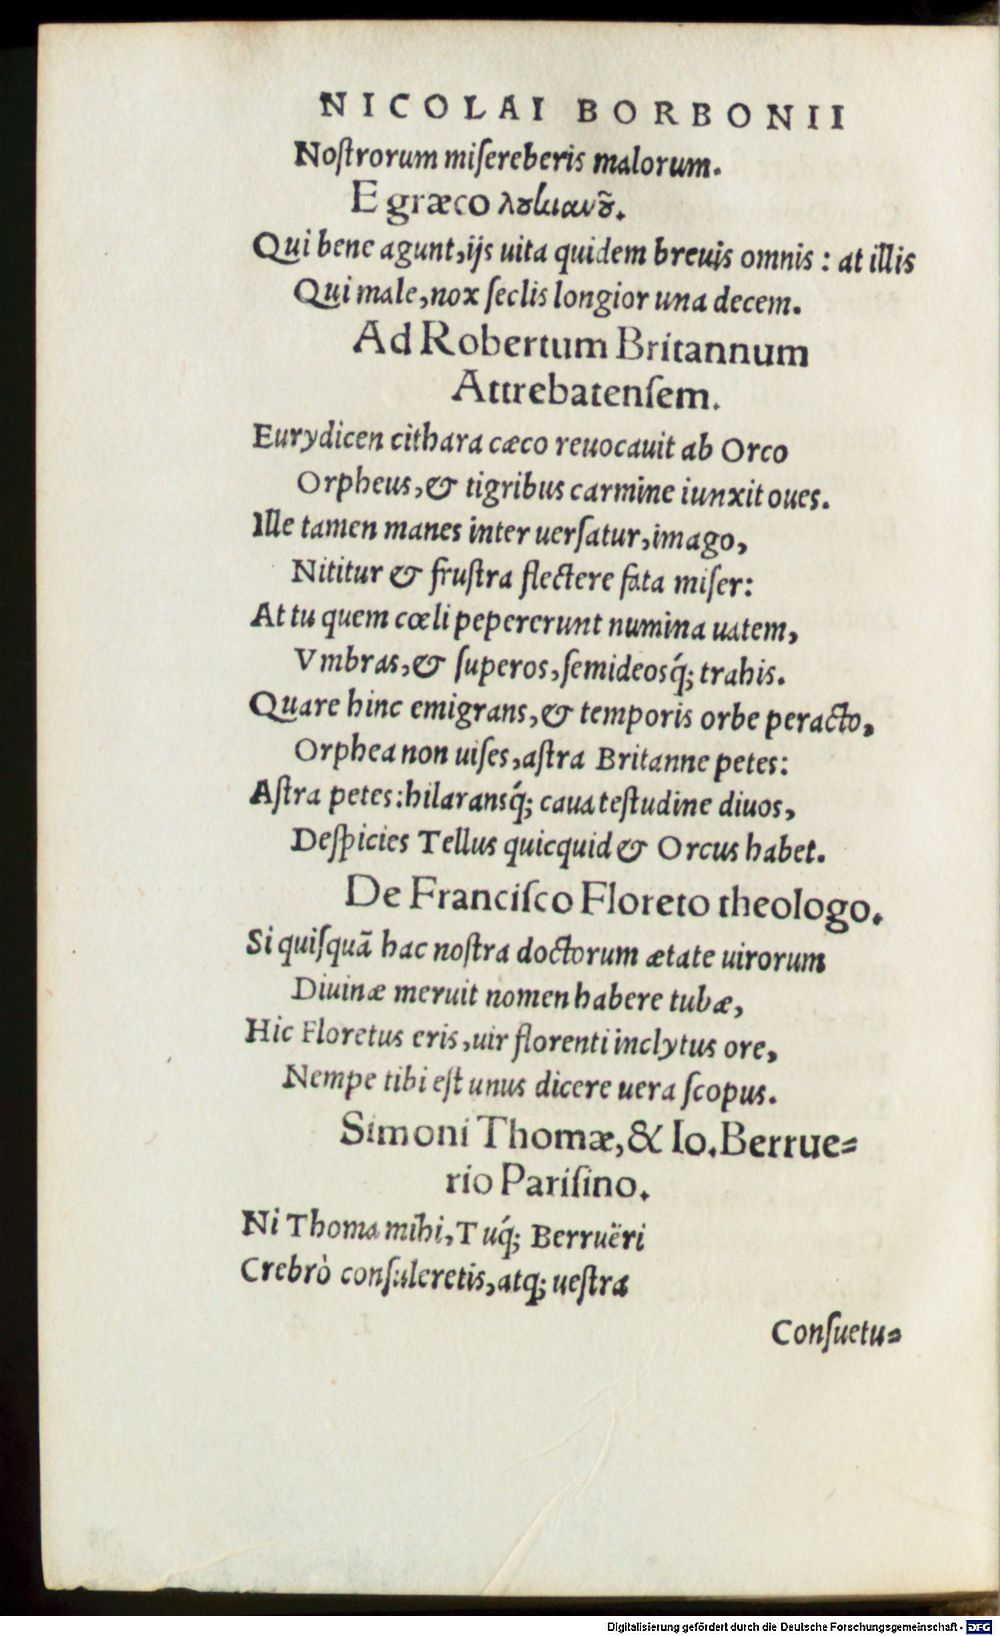 NICOLAI BORBONII
Noſtrorum miſereberis malorum.
E græco λουκιανοῦ.
Qui bene agunt, ijs uita quidem breuis omnis : at illis
Qui male, nox ſeclis longior una decem.
Ad Robertum Britannum
Attrebatenſem.
Eurydicen cithara cæco reuocauit ab Orco
Orpheus, & tigribus carmine iunxit oues.
Ille tamen manes inter uerſatur, imago,
Nititur & fruſtra flectere fata miſer:
At tu quem cœli pepererunt numina uatem,
Vmbras, & ſuperos, ſemideosq́; trahis.
Quare hinc emigrans, & temporis orbe peracto,
Orphea non uiſes, aſtra Britanne petes:
Aſtra petes: hilaransq́; caua teſtudine diuos,
Deſpicies Tellus quicquid & Orcus habet.
De Franciſco Floreto theologo.
Si quiſquã hac noſtra doctorum ætate uirorum
Diuinæ meruit nomen habere tubæ,
Hic Floretus eris, uir florenti inclytus ore,
Nempe tibi eſt unus dicere uera ſcopus.
Simoni Thomæ, & Io. Berrue=
rio Pariſino.
Ni Thoma mihi, Tuq́; Berruëri
Crebrò conſuleretis, atq; ueſtra
Conſuetu=
Digitalisierung gefördert durch die Deutsche Forschungsgemeinschaft - DFG